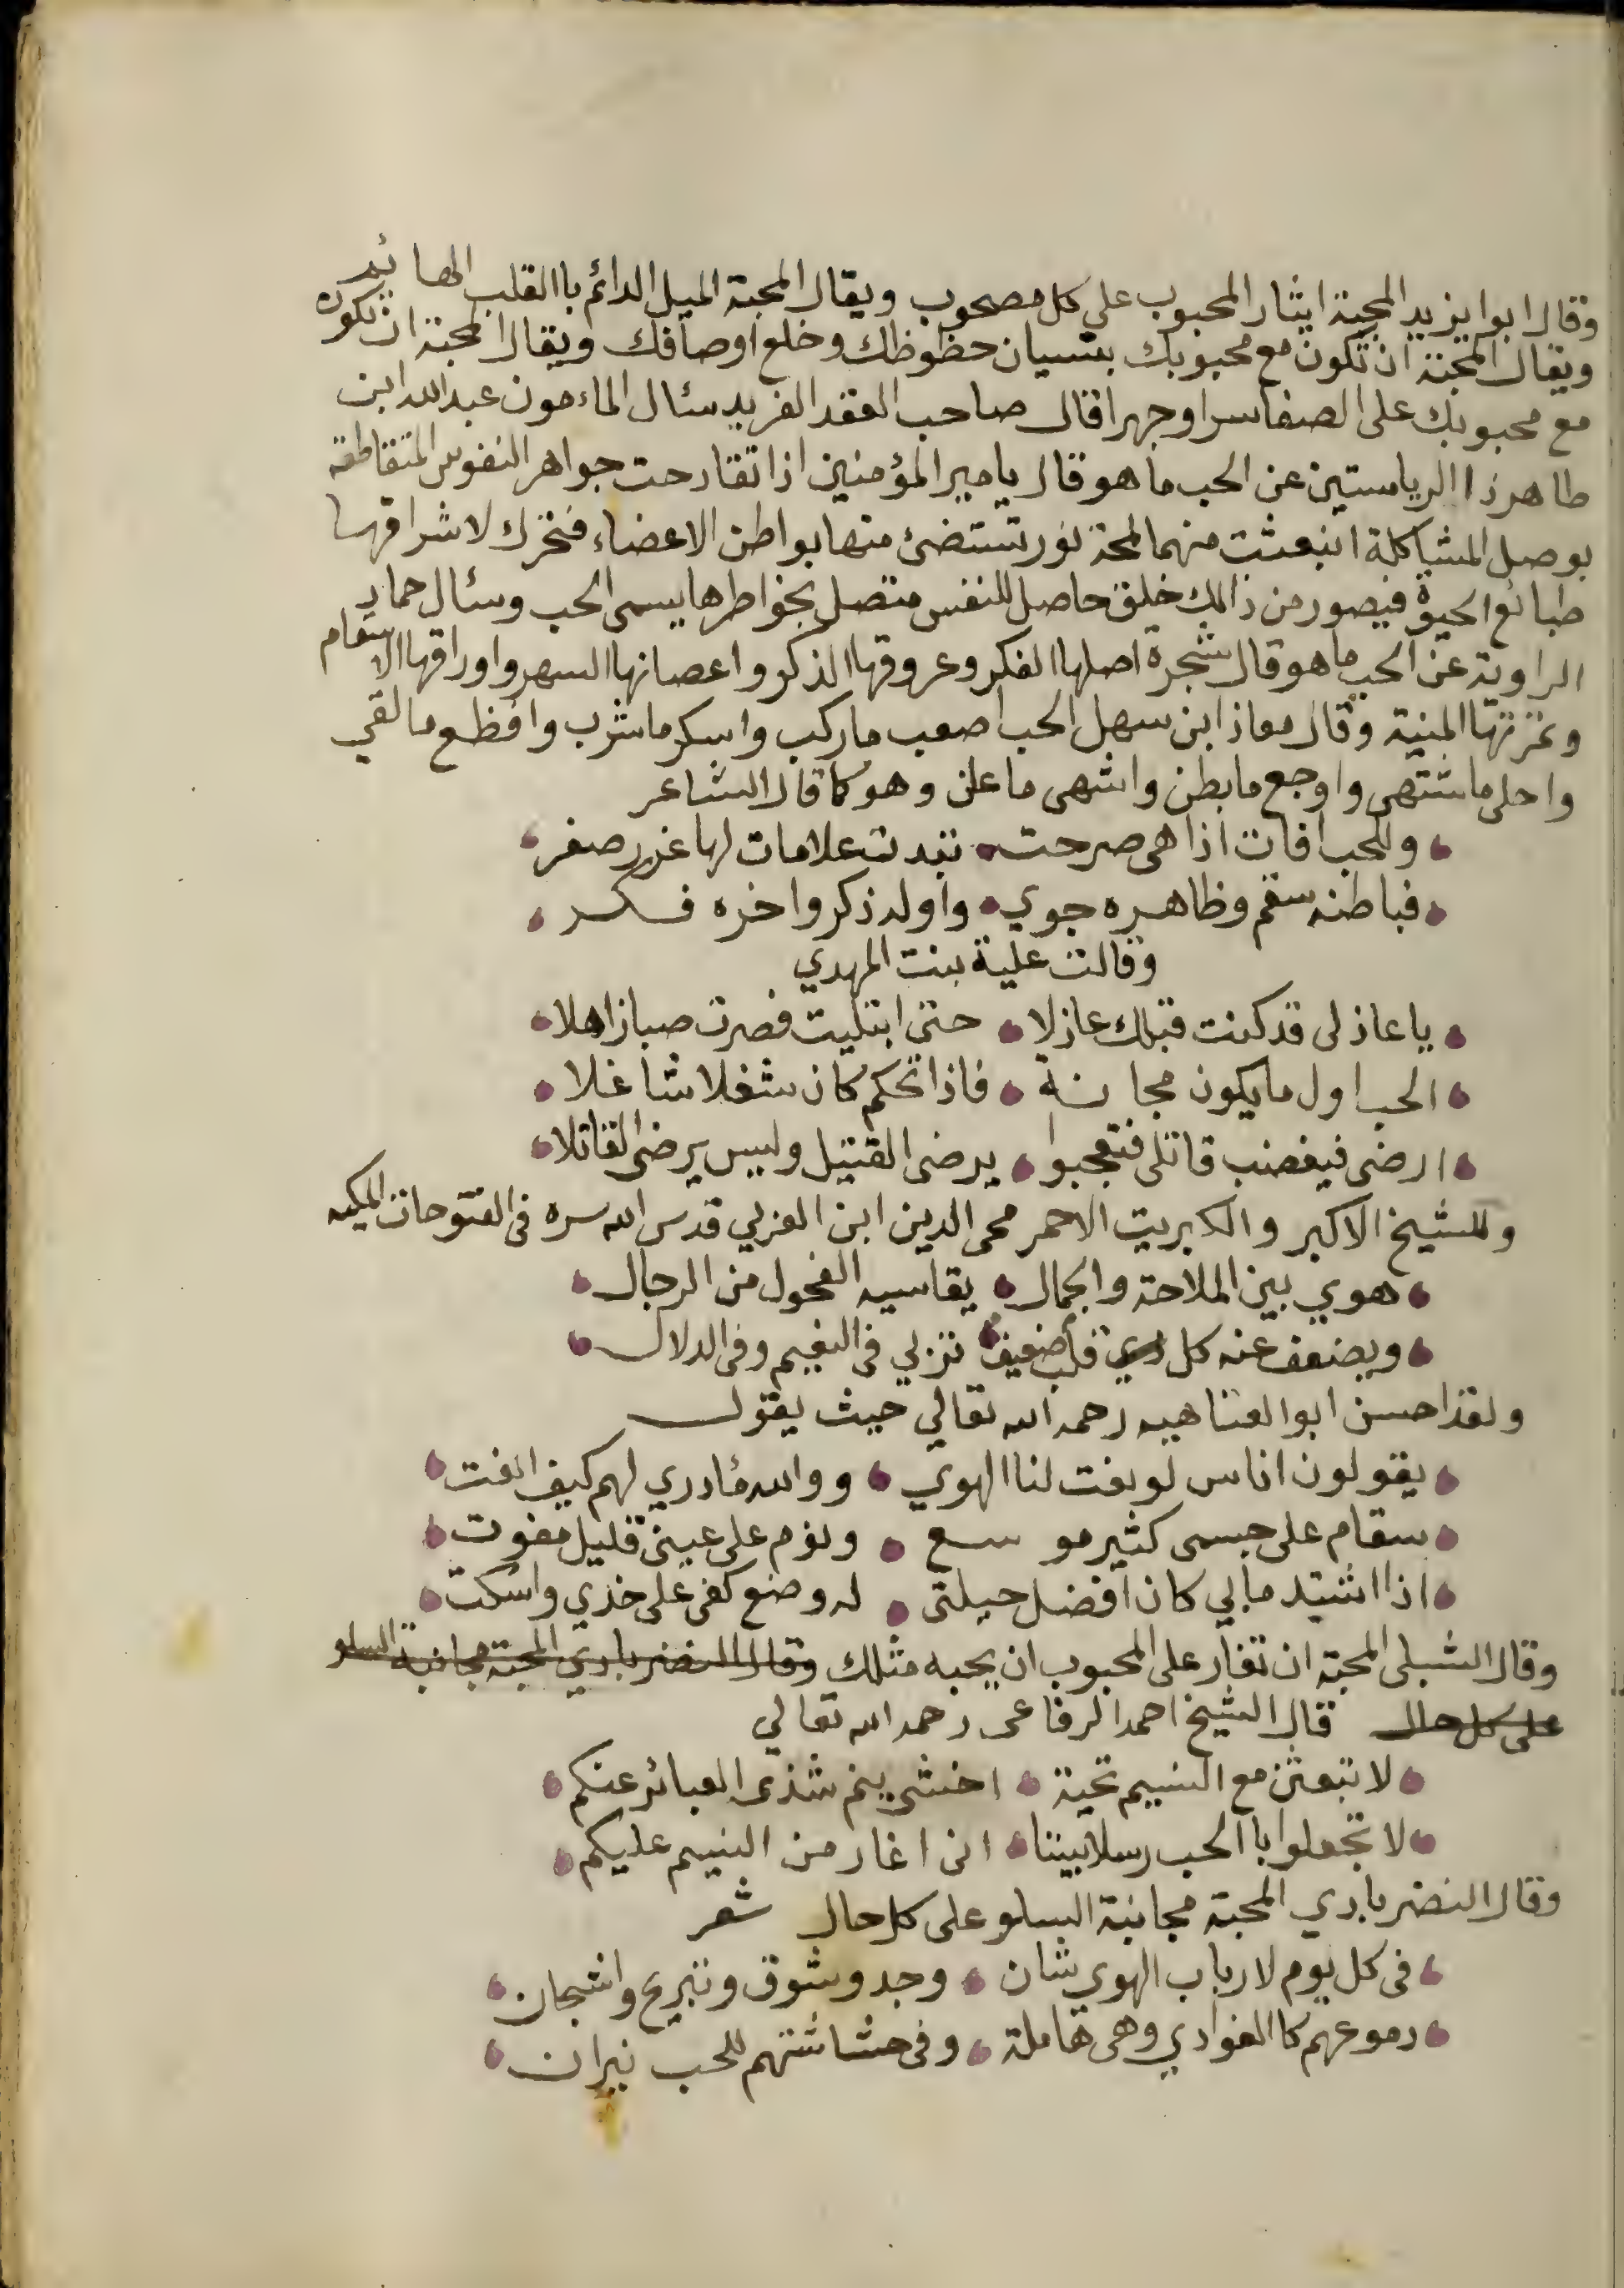 وقال ابوا يزيد المحبة ايثار المحبوب على كل مصحوب ويقال المحبة الميل الدائم باالقلب الهائم
ويقال المحبة ان تكون مع محبوبك بنسيان حظوظك وخلع اوصافك ويقال المحبة ان تكون
مع محبوبك على الصفا سرا وجهرا قال صاحب العقد الفريد سئال الماءمون عبدالله ابن
طاهر ذا الرياستين عن الحب ما هو قال يا مير المؤمنين اذا تقادحت جواهر النفوس المتقاطعة
بوصل المشاكلة انبعثت منهما لمحة نور تستضئ منها بواطن الاعضاء فتحرك لاشراقها
طبائع الحيوة فيصور من ذالك خلق حاصل للنفس متصل بخواطرها يسمى الحب وسئال حماد
الراوية عن الحب ما هو قال شجرة اصلها الفكر وعروقها الذكر واعصانها السهر واوراقها الاسقام
وثمرتها المنية وقال معاذ ابن سهل الحب اصعب ما ركب واسكر ما شرب وافظع ما لقي
واحلى ما شتهى واوجع ما بطن واشهى ما علن وهو كما قال الشاعر
وللحب افات اذا هي صرحت تبدت علامات لها غرر صفر
فباطنه سقم وظاهره جوي واوله ذكر واخره فكر
وقالت علية بنت المهدي
يا عاذلى قد كنت قبلك عازلا حتى ابتليت فصرت صبا زاهلا
الحب اول ما يكون مجانة فاذا تحكم كان شغلا شاغلا
ارضى فيغضب قاتلى فتعجبوا يرضى القتيل وليس يرضى القاتلا
وللشيخ الاكبر والكبريت الاحمر محى الدين ابن العربي قدس الله سره فى الفتوحات المكيه
هوي بين الملاحة والجمال يقاسيه الفحول من الرجال
ويضعف عنه كل قلب ضعيف تربي فى النعيم وفى الدلال
ولقد احسن ابوا العتاهيه رحمه الله تعالي حيث يقول
يقولون اناس لو نعت لنا الهوي ووالله ما ادري لهم كيف انعت
سقام على جسمى كثير موسع ونوم على عينى قليل مفوت
اذا اشتد ما بي كان افضل حيلتى له وضع كفى على خدي واسكت
وقال الشبلى المحبة ان تغار على المحبوب ان يحبه مثلك وقال النضرباري المحبة مجانبة السلو
على كل حال قال الشيخ احمد الرفاعى رحمه الله تعالي
لا تبعثن مع النسيم تحية اخشى ينم شذى العبائر عنكم
لا تجعلوا باالحب رسلا بيننا انى اغار من النسيم عليكم
وقال النضرباري المحبة مجانبة السلو على كل حال شعر
فى كل يوم لارباب الهوي شان وجد وشوق وتبريح واشجان
دموعهم كاالغوادي وهى هاملة وفى حشاشتهم للحب نيران